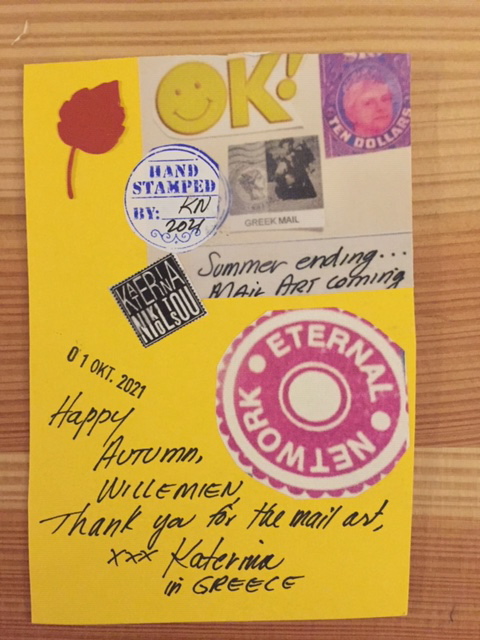 OK!
TEN DOLLARS
HAND
STAMPED
BY: KN
2021
GREEK MAIL
Summer ending...
MAIL ART coming
KATERINA
NIKOLTSOU
01 OKT. 2021
ETERNAL
NETWORK
Happy
AUTUMN,
WILLEMIEN,
Thank you for the mail art,
xxx Katerina
in GREECE